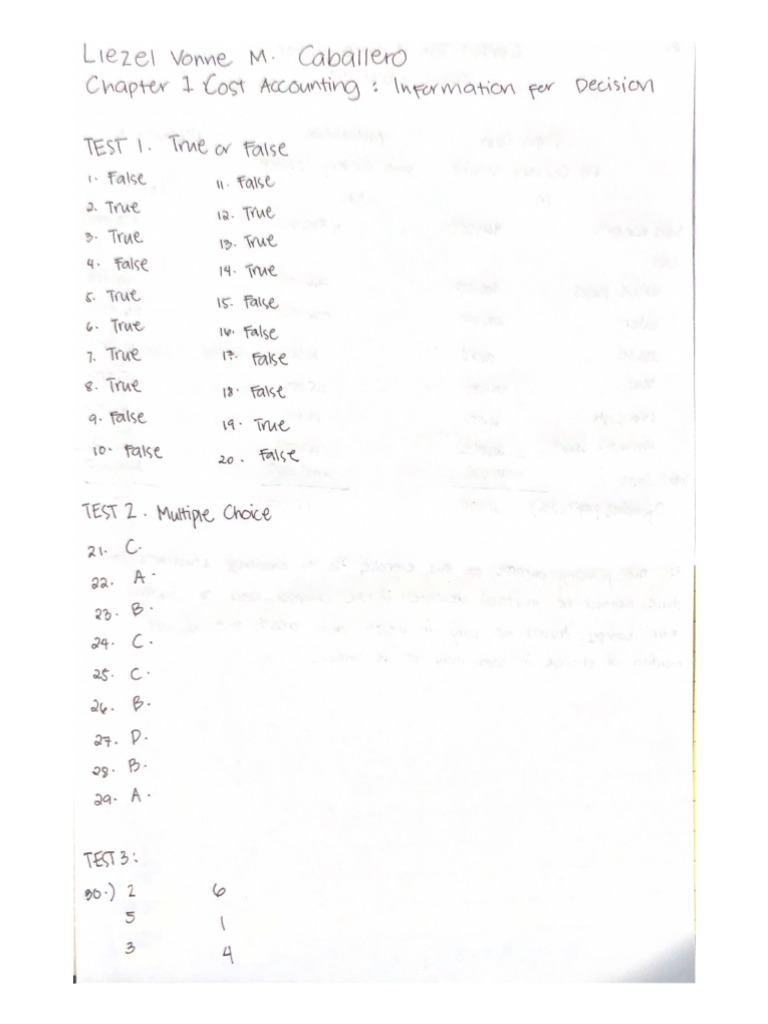 Liezel Vonne M. Caballero
Chapter 1 Cost Accounting : Information for Decision
TEST 1. True or False
1. False
2. True
3. True
4. False
5. True
6. True
7. True
8. True
9. False
10. False
11. False
12. True
13. True
14. True
15. False
16. False
17. False
18. False
19. True
20. False
TEST 2. Multiple Choice
21. C.
22. A.
23. B.
24. C.
25. C.
26. B.
27. D.
28. B.
29. A.
TEST 3:
30.) 2 6
5 1
3 4